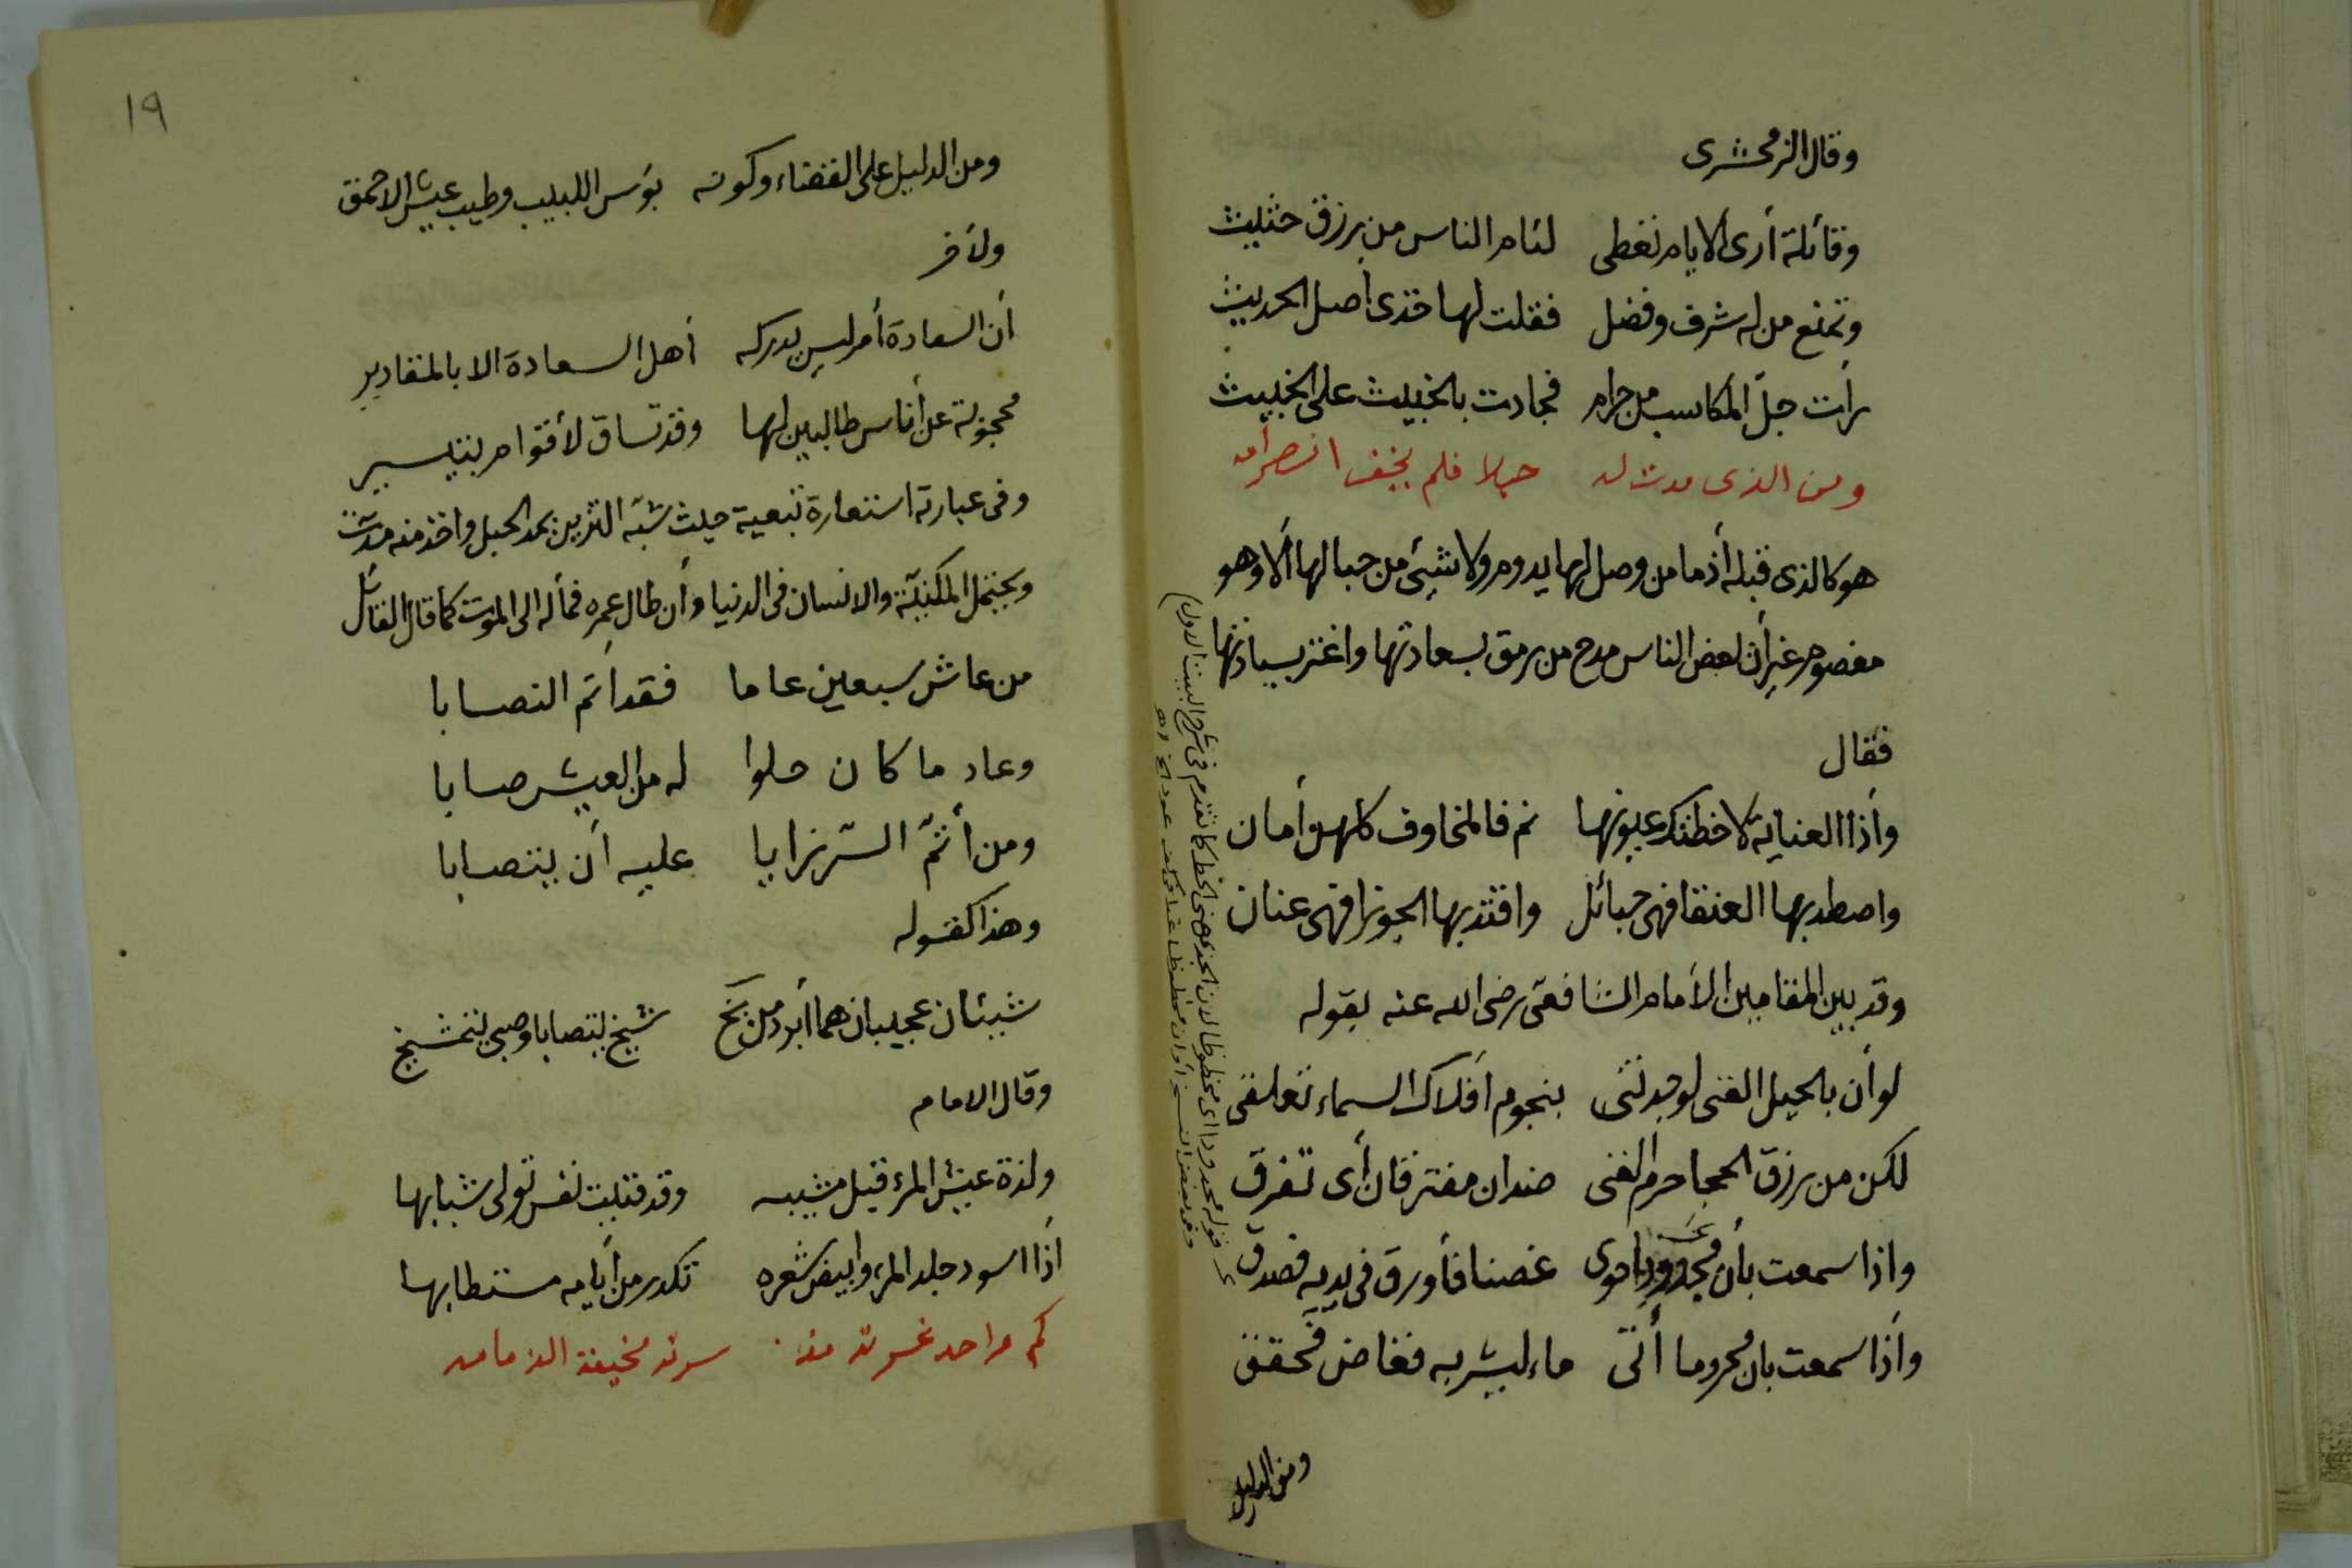 وقال الزمخشرى
وقائلة أرى الايام تعطى لئام الناس من رزق حثيث
وتمنع من له شرف وفضل فقلت لها خذى أصل الحديث
رأت جلّ المكاسب من حرام فجادت بالخبيث على الخبيث
ومن الذى مدت له حبلا فلم يخف انصرامه
هو كالذى قبله أذ ما من وصل لها يدوم ولا شيئ من حبالها ألا وهو
مفصوم غير أن بعض الناس مدح من رمق بسعادتها واغتر بسيادتها
فقال
وأذا العناية لاحظتك عيونها نم فالمخاوف كلهن أمان
واصطد بها العنقا فهى حبائل واقتد بها الجوزا فهى عنان
وقد بين المقامين الأمام الشافعى رضى الله عنه بقوله
لو أن بالحيل الغنى لوجدتنى بنجوم أفلاك السماء تعلقى
لكن من رزق الحجا حرم الغنى ضدان مفترقان أى تفرق
واذا سمعت بأن مجدودا حوى غصنا فأورق فى يديه فصدق
وأذا سمعت بان محروما أتى ماء ليشربه فغاض فحقق
ومن الدليل
قوله مجدودا اى محظوظا لان الجد هو الحظ كما تقدم فى شرح البيت الاول
١٩
ومن الدليل على القضاء وكونه بؤس اللبيب وطيب عيش الاحمق
ولأخر
أن السعادة أمر ليس يدركه أهل السعادة الا بالمقادير
محجوبة عن أناس طالبين لها وقد تساق لأقوام بتيسير
وفى عبارته استعارة تبعية حيث شبّه التزيين بمد الحبل واخذ منه مدّت
ويحتمل المكنيّة والانسان فى الدنيا وأن طال عمره فمأله الى الموت كما قال القائل
من عاش سبعين عاما فقد اتم النصابا
وعاد ما كان حلوا له من العيش صابا
ومن أتمّ الرزايا عليه أن يتصابا
وهذا كقوله
شيئان عجيبان هما أبرد من يخ شيخ يتصابا وصبى يتمشيخ
وقال الامام
ولذة عيش المرء قبل مشيبه وقد فنيت نفس تولى شبابها
أذا اسود جلد المرء وابيض شعره تكدر من أيامه مستطابها
كم واحد غرته مذ سرته مخيفة الدمامه